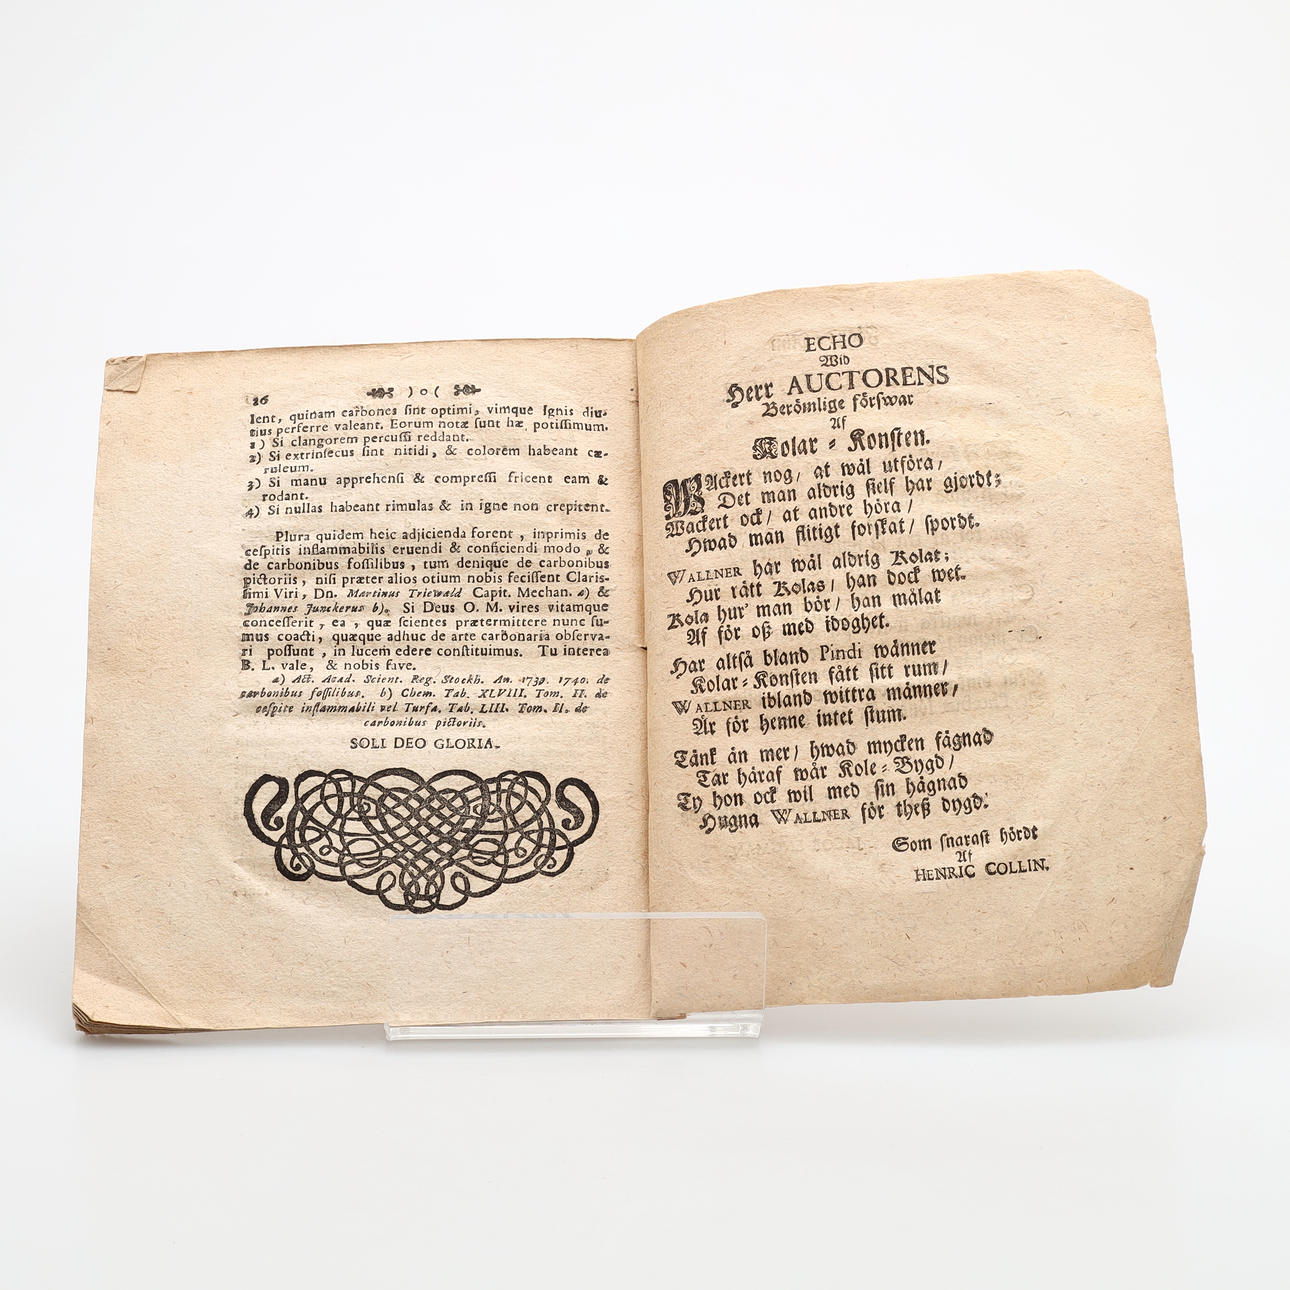 26 ) o (
lent, quinam carbones ſint optimi, vimque Ignis diu-
tius perferre valeant. Eorum notæ ſunt hæ potiſſimum.
1) Si clangorem percuſſi reddant.
2) Si extrinſecus ſint nitidi, & colorem habeant cæ-
ruleum.
3) Si manu apprehenſi & compreſſi fricent eam &
rodant.
4) Si nullas habeant rimulas & in igne non crepitent.
Plura quidem heic adjicienda forent, inprimis de
ceſpitis inflammabilis eruendi & conficiendi modo, &
de carbonibus foſſilibus, tum denique de carbonibus
pictoriis, niſi præter alios otium nobis feciſſent Claris-
ſimi Viri, Dn. Martinus Triewald Capit. Mechan. a) &
Johannes Junckerus b). Si Deus O. M. vires vitamque
conceſſerit, ea, quæ ſcientes prætermittere nunc ſu-
mus coacti, quæque adhuc de arte carbonaria obſerva-
ri poſſunt, in lucem edere conſtituimus. Tu interea
B. L. vale, & nobis fave.
a) Act. Acad. Scient. Reg. Stockh. An. 1739. 1740. de
carbonibus foſſilibus. b) Chem. Tab. XLVIII. Tom. II. de
ceſpite inflammabili vel Turfa, Tab. LIII. Tom. II. de
carbonibus pictoriis.
SOLI DEO GLORIA.
ECHO
Wid
Herr AUCTORENS
Berömlige förſwar
Af
Kolar-Konſten.
WAckert nog/ at wäl utföra/
Det man aldrig ſielf har gjordt;
Wackert ock/ at andre höra/
Hwad man flitigt forſkat/ ſpordt.
WALLNER har wäl aldrig Kolat;
Hur rätt Kolas/ han dock wet.
Kola hur' man bör/ han målat
Af för oß med idoghet.
Har altſå bland Pindi wänner
Kolar-Konſten fått ſitt rum/
WALLNER ibland wittra männer/
Är för henne intet ſtum.
Tänk än mer/ hwad mycken fägnad
Tar häraf wår Kole-Bygd/
Ty hon ock wil med ſin hägnad
Hugna WALLNER för theß dygd.
Som ſnaraſt hördt
Af
HENRIC COLLIN.